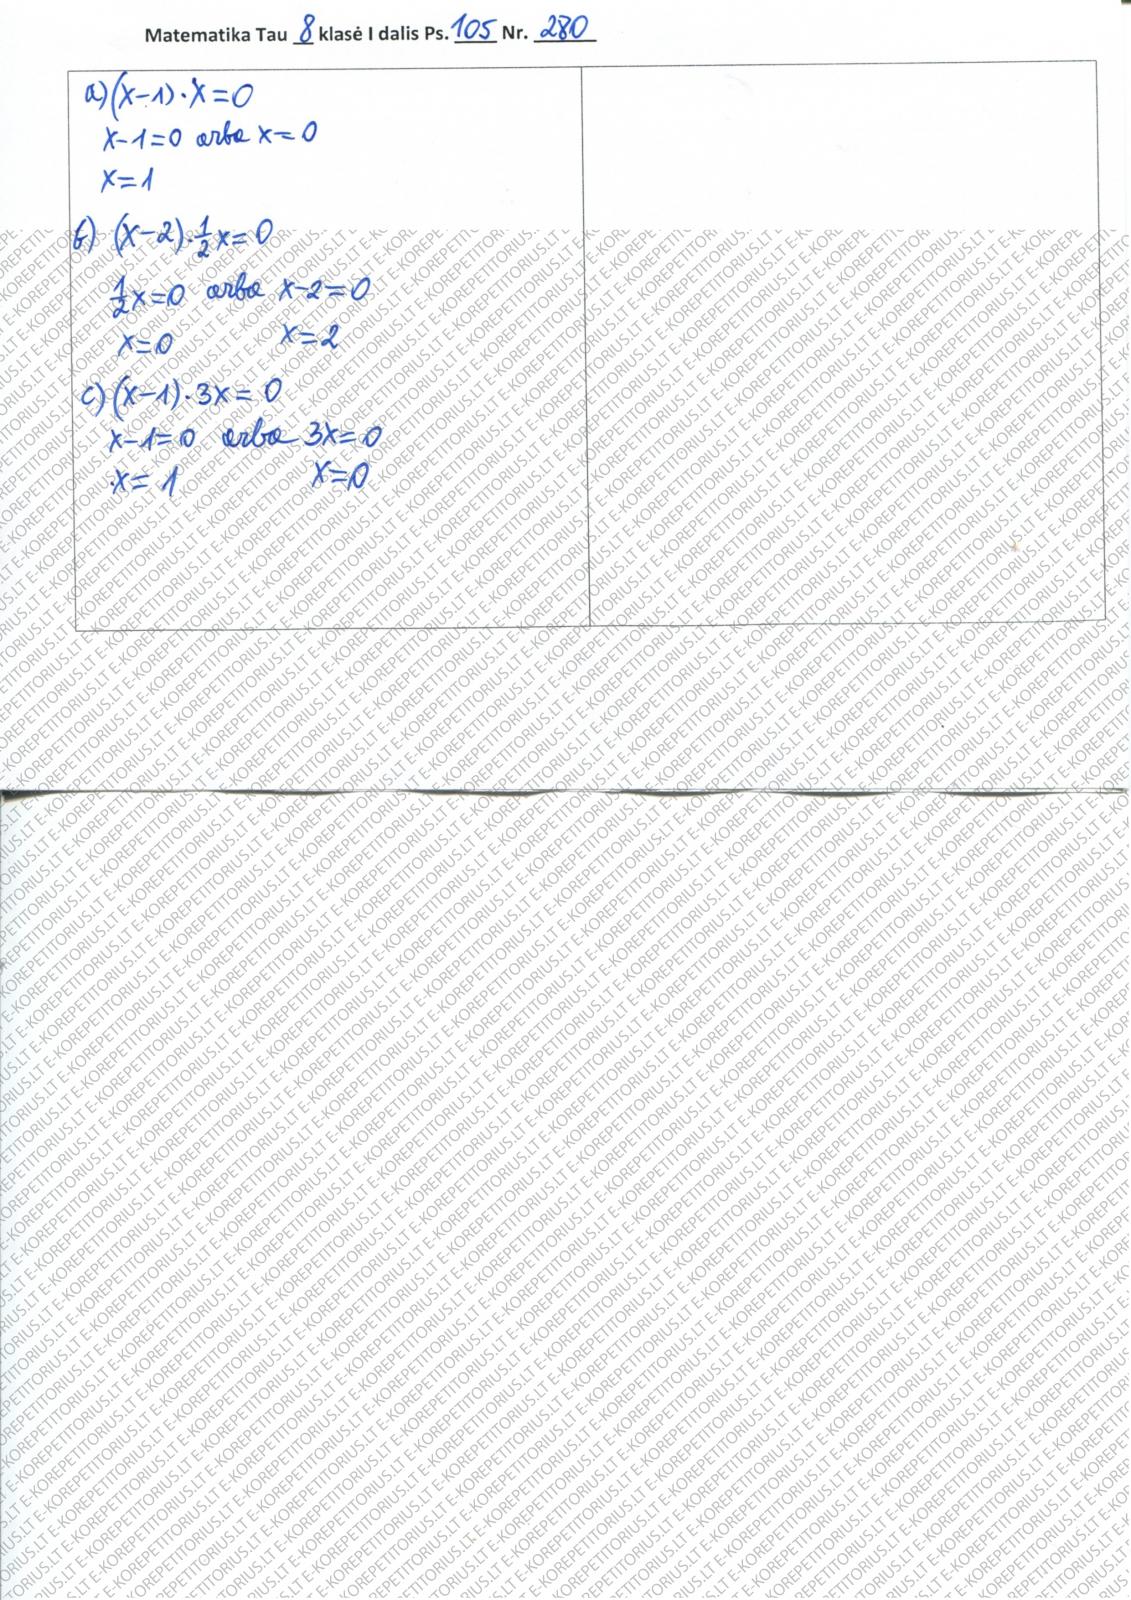 Matematika Tau 8 klasė I dalis Ps. 105 Nr. 280
a) (x-1)·x=0
x-1=0 arba x=0
x=1
b) (x-2)·1/2x=0
1/2x=0 arba x-2=0
x=0 x=2
c) (x-1)·3x=0
x-1=0 arba 3x=0
x=1 x=0
E-KOREPETITORIUS.LT